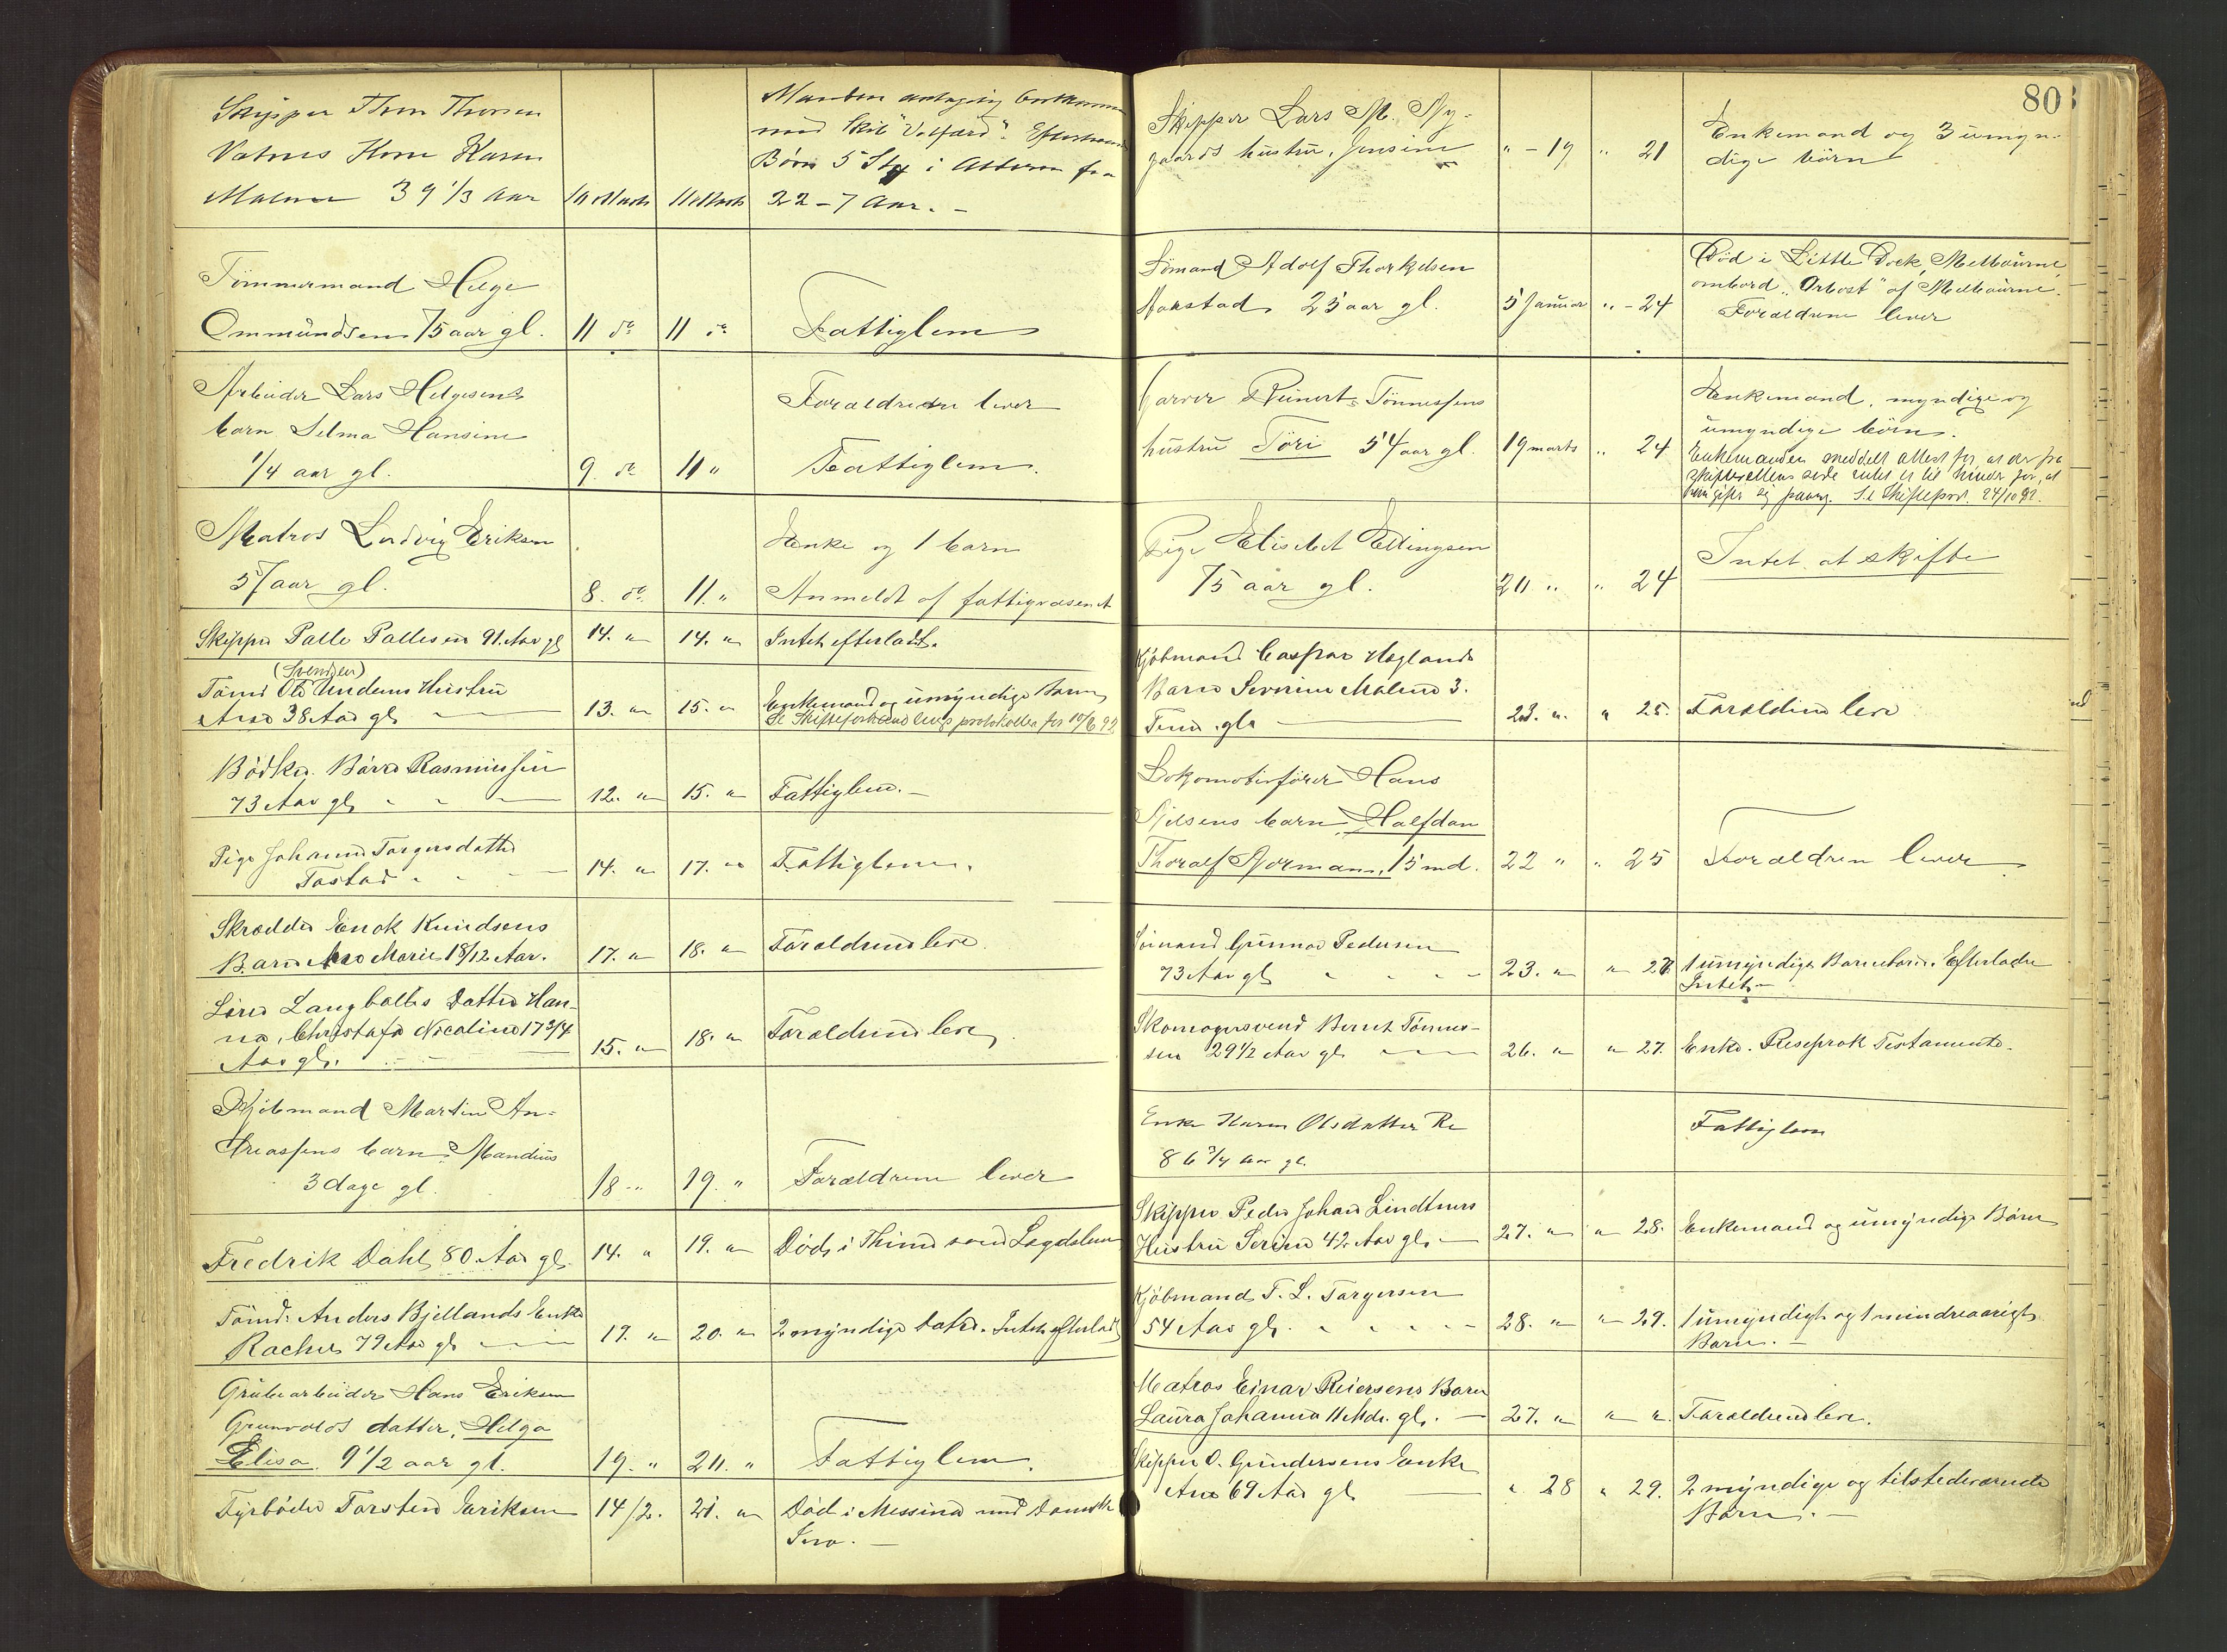 Skipper Thom Thorsen
Vatnes Kone Karen
Malene 39 1/3 Aar 10 Marts 11 Marts
Manden antagelig
med Skib "Velfærd".
Børn 5 Stk i Alderen fra
22 – 7 Aar. –
Tömmermand Helge
Ommundsen 75 aar gl. 11 do 11 do Fattiglem
Arbeider Lars Helgesens
barn Selma Hansine
1/4 aar gl. 9. do 11 "
Forældrene lever
Fattiglem.
Matros Ludvig Eriksen
57 aar gl. 8. do. 11. "
Enke og 1 barn
Anmeldt af fattigvæsenet
Skipper Palle Pallesen 91. Aar gl 14. " 14. " Intet efterladt.
(Svendsen)
Tømd Ole Undems Hustru
Ane 38 Aar gl 13. " 15. "
Enkemand og umyndige Børn
Se Skifteforhandlings protokollen for 10/6 92
Bödker Börre Rasmussen
73 Aar gl 12. " 15. " Fattiglem. –
Pige Johanne Torgersdatter
Tastad 14. " 17. " Fattiglem.
Skrædder Enok Knudsens
Barn Ane Marie 18/12 Aar. 17. " 18. " Forældrene leve.
Lars Langballes Datter Han-
na, Christofa Nicoline 17 3/4
Aar gl. 15. " 18. " Forældrene leve
Kjöbmand Martin An-
dreassens barn Mandius
3 dage gl. 18 " 19. " Forældrene lever
Fredrik Dahl, 80 Aar gl. 14. " 19. " Död i Thime som Lægdslem
Tömd. Anders Bjellands Enke
Rachel 79 Aar gl 17. " 20. " 2 myndige Døtre. Intet efterladt
Grubearbeider Hans Eriksen
Grunvolds datter, Helga
Elisa. 9 1/2 aar gl. 19. " 21. " Fattiglem.
Fyrbøder Torsten Eriksen 14/2. 21. " Död i Messina med Dampsk
80
Skipper Lars M. Ny-
gaards hustru, Jensine " – 19 " 21
Enkemand og 3 umyn-
dige børn
Sömand Adolf Thorkelsen
Aarstad 25 aar gl. 5 Januar " – 24
Död i Little Dock, Melbourne
ombord "Orbost" af Melbourne.
Forældrene lever
Garver Reinert Tönnessens
hustru Töri 54 aar gl. 19 marts " 24
Enkemand, myndige og
umyndige börn.
Enkemanden meddelt attest for at der fra
skifterettens side intet er til hinder for, at
han gifter sig paany. Se Skifteprot. 24/10 92.
Pige Elisabet Ellingsen
75 aar gl. 21 " " 24 Intet at skifte
Kjöbmand Caspar Høglands
Barn Severine Malene 3.
Time gl. 23. " " 25. Forældrene leve
Lokomotivförer Hans
Nilsens barn Halfdan
Thoralf Normann, 15 md. 22 " " 25 Forældren lever
Sömand Gunnar Pedersen
73 Aar gl 23. " " 27. 1 umyndige Barnebarn. Efterlader
Intet. –
Skomagersvend Bernt Tönnes-
sen 29 1/2 Aar gl. 26. " " 27. Enke. Reseprok Testamente.
Enke Karen Olsdatter Re
86 3/4 aar gl. Fattiglem
Skipper Peder Johan Lindtners
Hustru Serine 42 Aar gl. – 27. " " 28. Enkemand og umyndige Børn
Kjöbmand T. L. Torgersen
54 Aar gl. 28. " " 29. 1 umyndigt og 1 mindreaarigt
Barn. –
Matros Einar Reiersens Barn
Laura Johanna 11 Mdr. gl. – 27. " " " Forældrene leve.
Skipper O. Gundersens Enke
Ane 69 Aar gl. " 28 " 29. 2 myndige og tilstedeværende
Børn. –